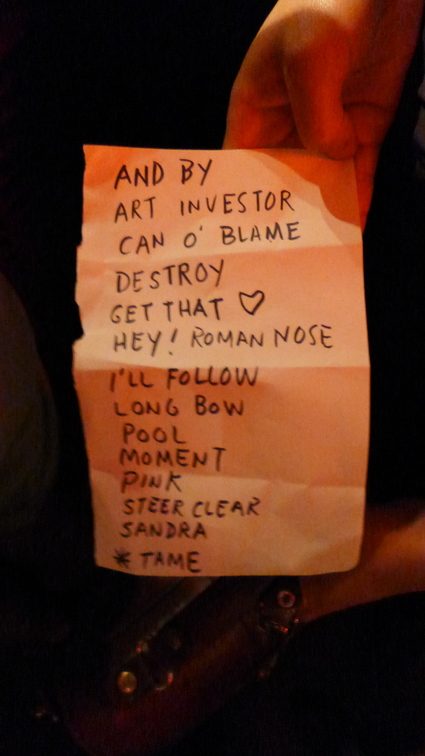 AND BY
ART INVESTOR
CAN O' BLAME
DESTROY
GET THAT ♡
HEY! ROMAN NOSE
I'LL FOLLOW
LONG BOW
POOL
MOMENT
PINK
STEER CLEAR
SANDRA
* TAME